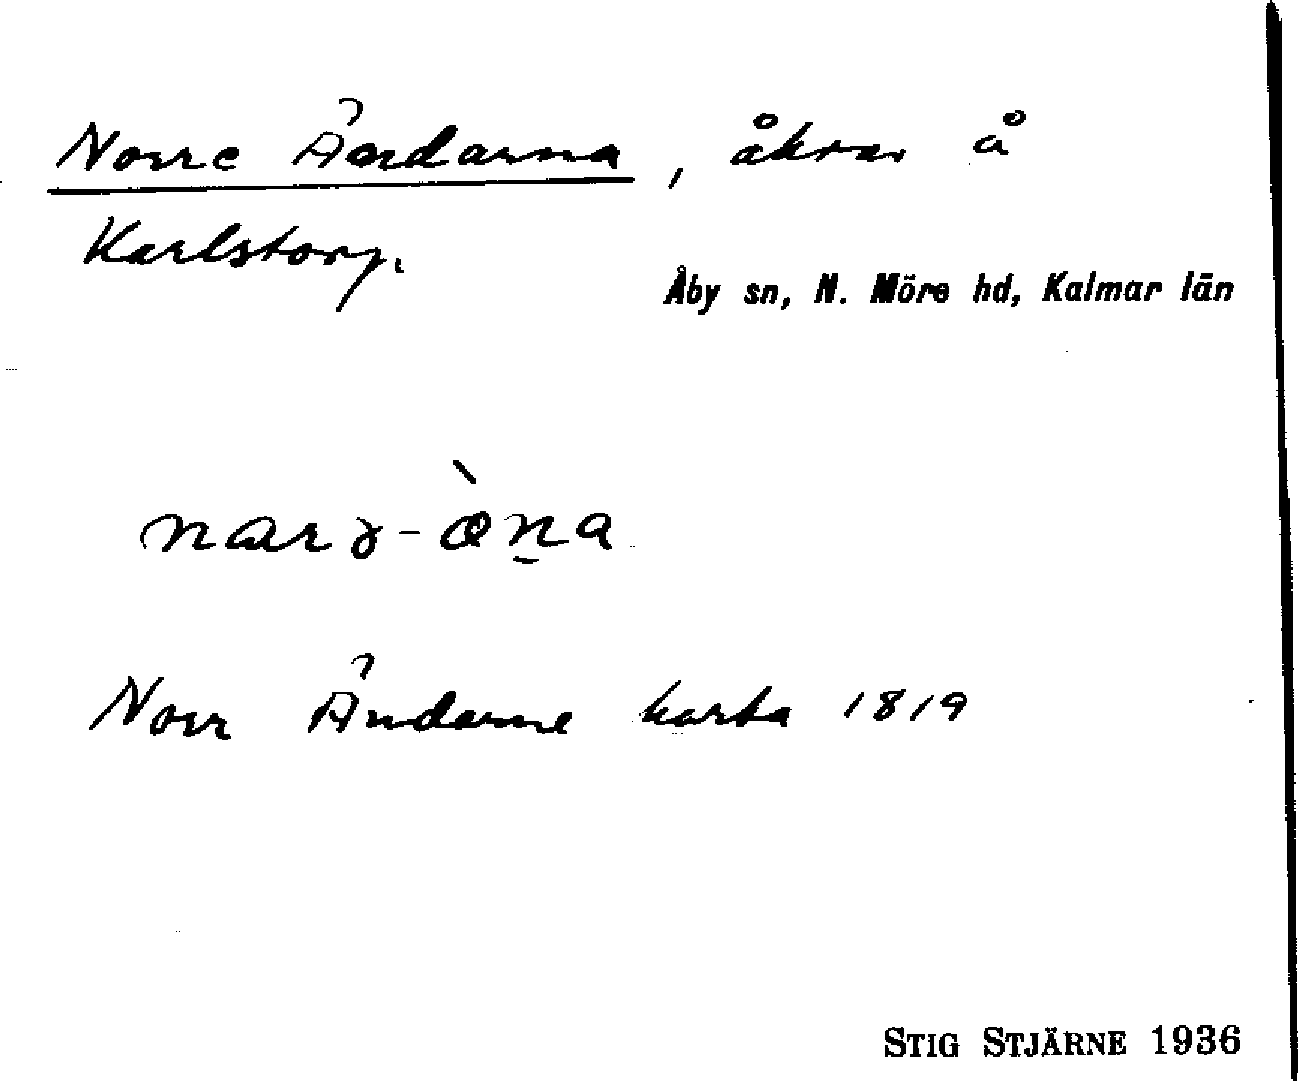 Norre Ändarna, åkrar å
Karlstorp.
Åby sn, N. Möre hd, Kalmar län
Norr Ändarne karta 1819
STIG STJÄRNE 1936